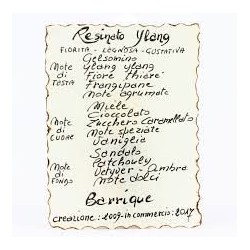 Resinato Ylang
FIORITA - LEGNOSA - GUSTATIVA
Gelsomino
Note Ylang Ylang
di Fiore thiarè
TESTA Frangipane
Note agrumate
Miele
Cioccolato
Note Zucchero Caramellato
di Note speziate
CUORE Vaniglia
Sandalo
Note Patchouly
di Vetyver - Ambra
FONDO Note dolci
Barrique
creazione: 2009 - in commercio: 2017